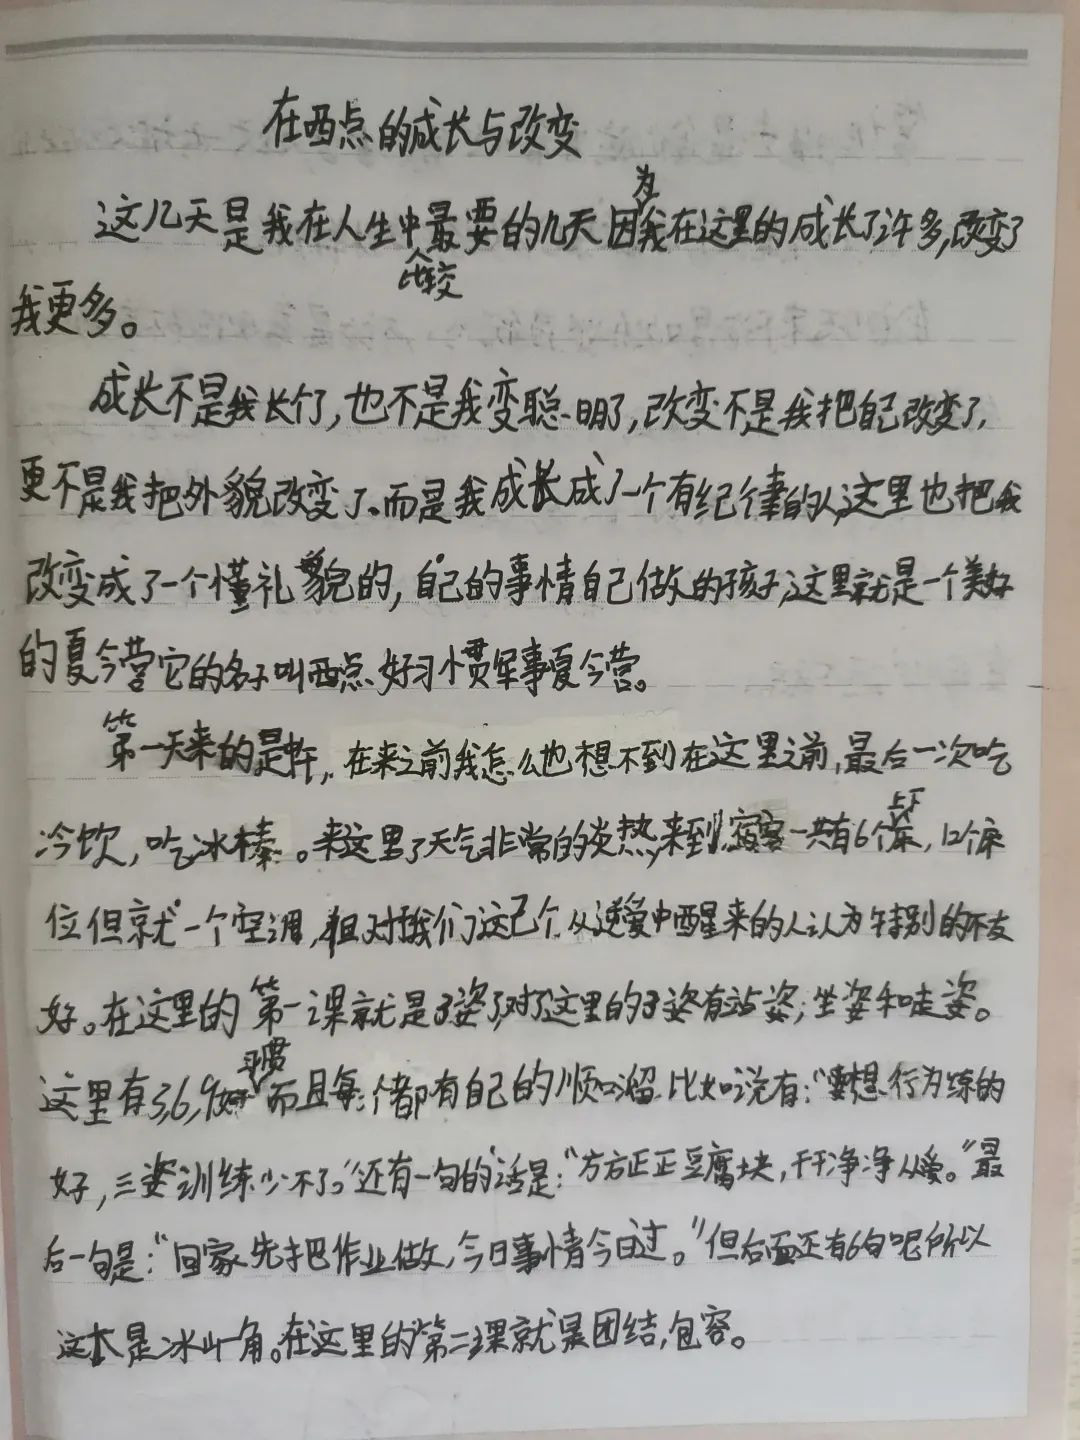 在西点的成长与改变
这几天是我在人生中比较最要的几天因为我在这里的成长了许多,改变了
我更多。
成长不是我长个了,也不是我变聪明了,改变不是我把自己改变了,
更不是我把外貌改变了。而是我成长成了一个有纪律的人,这里也把我
改变成了一个懂礼貌的,自己的事情自己做的孩子,这里就是一个美好
的夏令营它的名子叫西点好习惯军事夏令营。
第一天来的是,在来之前我怎么也想不到在这里之前,最后一次吃
冷饮,吃冰棒。来这里了天气非常的炎热,来到宿舍一共有6个上下床,12个床
位但就一个空调,但对我们这几个从中醒来的人认为特别的不友
好。在这里的第一课就是了姿了,对了这里的子姿有站姿;坐姿和走姿。
这里有3,6,9好习惯而且每个都有自己的顺口溜比如说有:“要想行为练的
好,三姿训练少不了。”还有一句的话是:“方方正正豆腐块,干干净净人人爱。”最
后一句是:“回家先把作业做,今日事情今日过。”但后面还有6句呢所以
这本是冰山一角。在这里的第二课就是团结,包容。